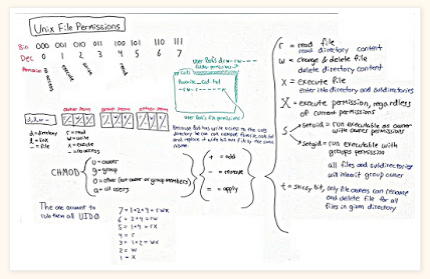 Unix File Permissions
Bin 000 001 010 011 100 101 110 111
Dec 0 1 2 3 4 5 6 7
no access
execute
write
read
user Bob's
owner perm group perm other perm
d = directory
l = link
- = file
r = read
w = write
x = execute
- = no access
Because Bob has write access to the cats
directory he can
CHMOD
u = owner
g = group
o = other (not owner or group members)
a = all users
+ = add
- = remove
= = apply
r = read file
read directory content
w = change & delete file
delete directory content
x = execute file
enter into directory and subdirectories
X = execute permission, regardless
of current permissions
s
setuid = run executable as owner
with owner permissions
setgid = run executable with
groups permission
all files and subdirectories
will inherit group owner
t = sticky bit, only file owners can rename
and delete file for all
files in given directory
The one account to
rule them all UID 0
7 = 1+2+4 = rwx
6 = 2+4 = rw
5 = 1+4 = rx
4 = r
3 = 1+2 = wx
2 = w
1 = x